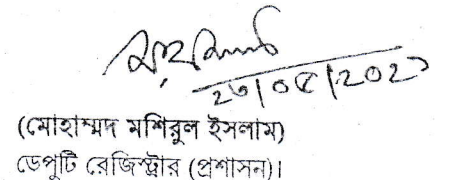 ২৩/০৫/২০২১
(মোহাম্মদ মশিরুল ইসলাম)
ডেপুটি রেজিস্ট্রার (প্রশাসন)।